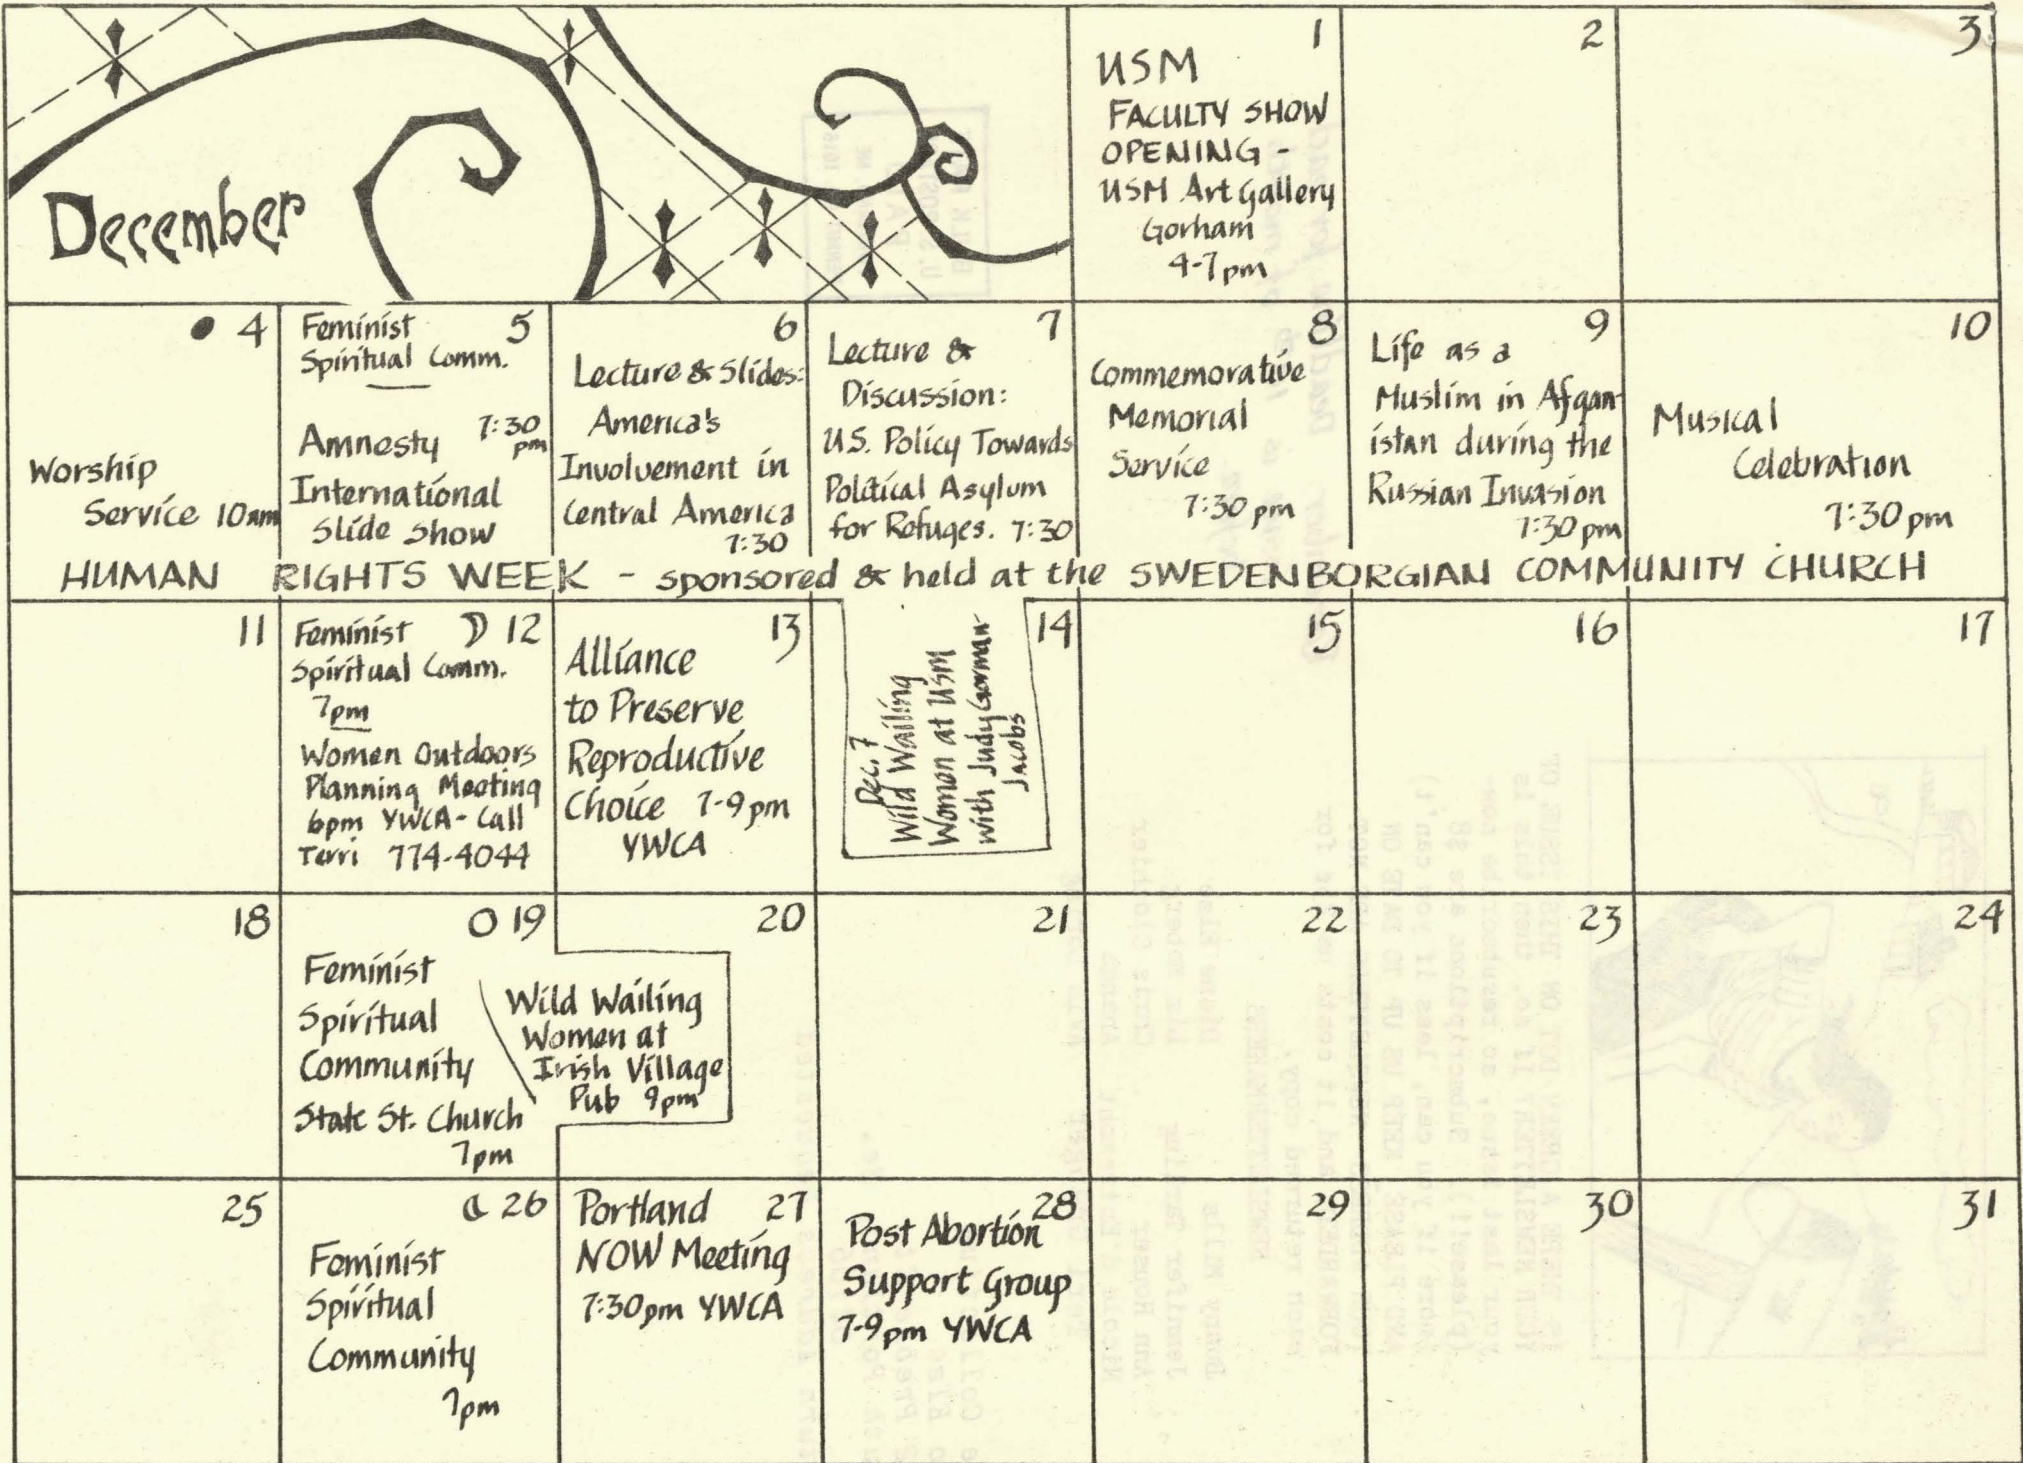 December
1
USM
FACULTY SHOW
OPENING -
USM Art Gallery
Gorham
4-7pm
2
3
4
Worship
Service 10am
5
Feminist
Spiritual Comm.
Amnesty 7:30 pm
International
Slide Show
6
Lecture & Slides:
America's
Involvement in
Central America
7:30
7
Lecture &
Discussion:
U.S. Policy Towards
Political Asylum
for Refuges. 7:30
8
Commemorative
Memorial
Service
7:30 pm
9
Life as a
Muslim in Afgan-
istan during the
Russian Invasion
7:30 pm
10
Musical
Celebration
7:30 pm
HUMAN RIGHTS WEEK - sponsored & held at the SWEDENBORGIAN COMMUNITY CHURCH
11
12
Feminist
Spiritual Comm.
7pm
Women Outdoors
Planning Meeting
6pm YWCA - Call
Terri 774-4044
13
Alliance
to Preserve
Reproductive
Choice 7-9pm
YWCA
14
Dec. 7
Wild Wailing
Women at USM
with Judy Gorman-
Jacobs
15
16
17
18
19
Feminist
Spiritual
Community
State St. Church
7pm
Wild Wailing
Women at
Irish Village
Pub 9pm
20
21
22
23
24
25
26
Feminist
Spiritual
Community
7pm
27
Portland
NOW Meeting
7:30pm YWCA
28
Post Abortion
Support Group
7-9pm YWCA
29
30
31